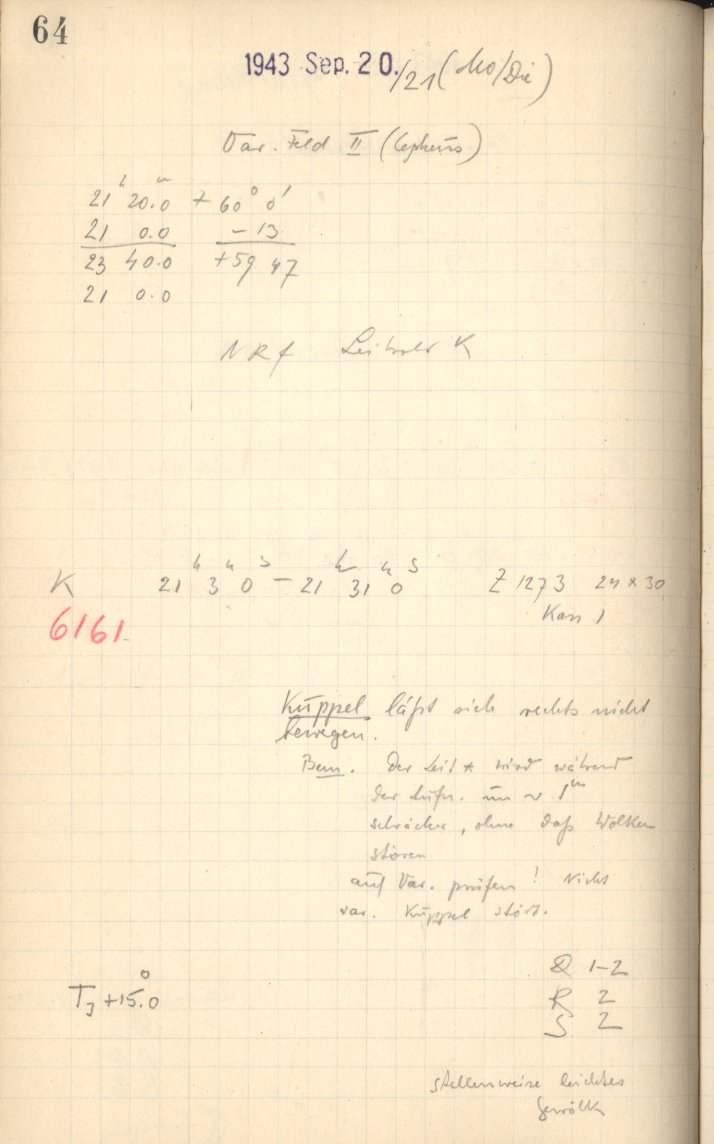 64
1943 Sep. 20./21 (Mo/Di)
Var. Feld II (Cepheus)
21ʰ 20.0ᵐ + 60° 0'
21 0.0 - 13
23 40.0 +59 47
21 0.0
NRf K
K 21ʰ 3ᵐ 0ˢ – 21ʰ 31ᵐ 0ˢ Z 1273 24 x 30
Kass 1
6161
Kuppel läßt sich rechts nicht
bewegen.
Bem. Der Leit * wird während
der Aufn. um ~ 1ᵐ
schwächer, ohne daß Wolken
stören
auf Var. prüfen! Nicht
var. Kuppel stört.
T +15.0°
1–2
R 2
S 2
stellenweise leichtes
Gewölk